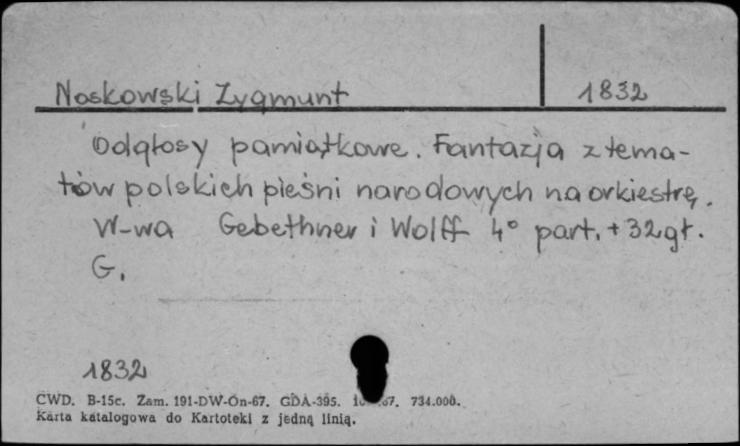 Noskowski Zygmunt 1832
Odgłosy pamiątkowe. Fantazja z tema-
tów polskich pieśni narodowych na orkiestrę.
W-wa Gebethner i Wolff 4° part. + 32 gł.
G.
1832
CWD. B-15c. Zam. 191-DW-On-67. GDA-395. 734.000.
Karta katalogowa do Kartoteki z jedną linią.